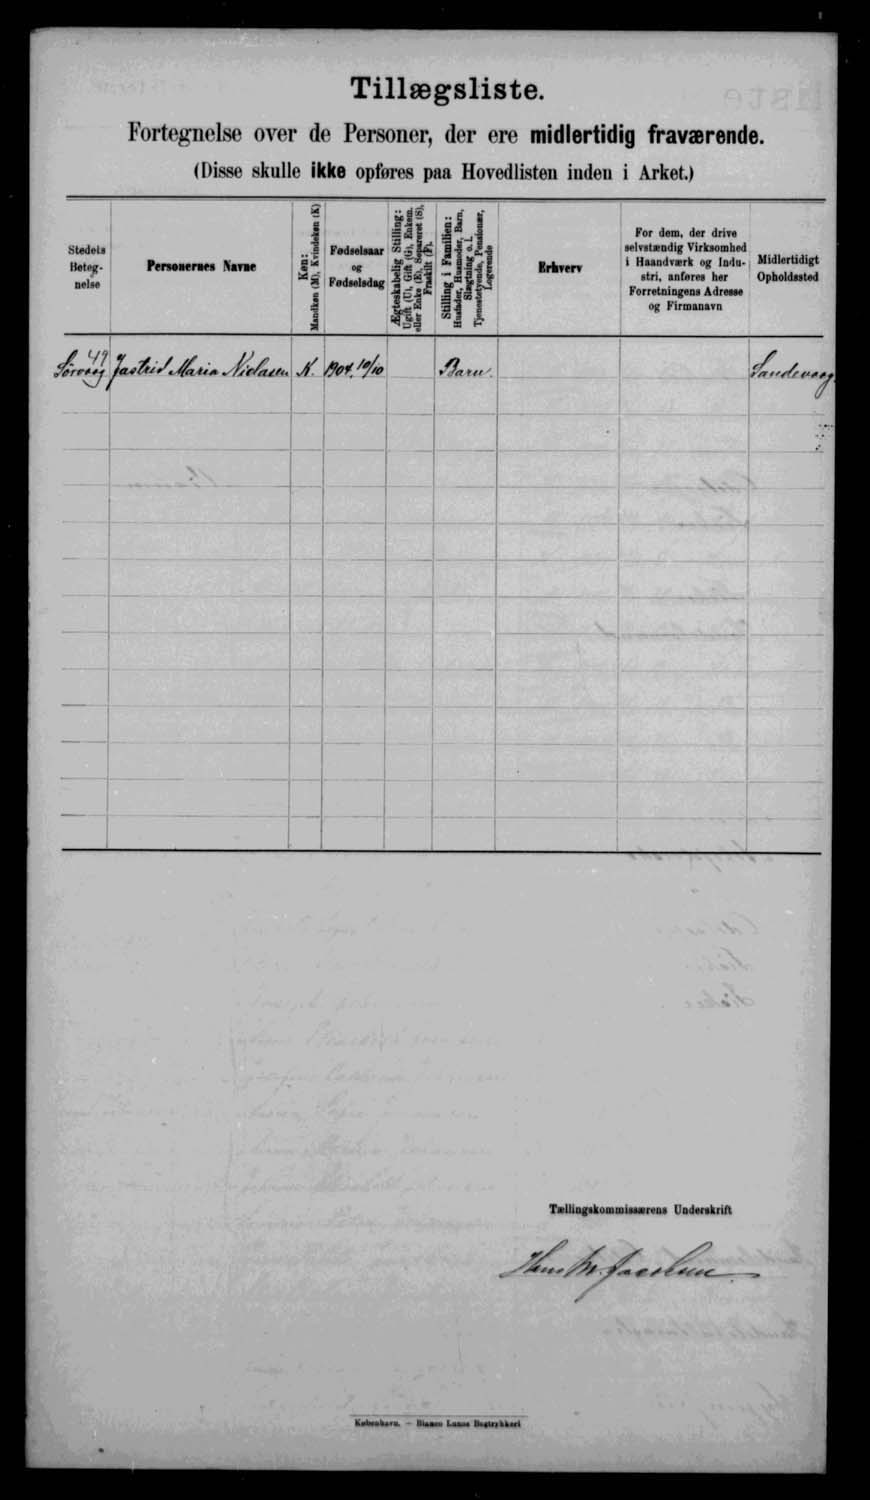 Tillægsliste.
Fortegnelse over de Personer, der ere midlertidig fraværende.
(Disse skulle ikke opføres paa Hovedlisten inden i Arket.)
Stedets Betegnelse
Personernes Navne
Køn:
Mandkøn (M), Kvindekøn (K)
Fødselsaar
og
Fødselsdag
Ægteskabelig Stilling:
Ugift (U), Gift (G), Enkem.
eller Enke (E), Separeret (S),
Fraskilt (F).
Stilling i Familien:
Husfader, Husmoder, Barn,
Slægtning o. l.
Tjenestetyende, Pensionær,
Logerende
Erhverv
For dem, der drive
selvstændig Virksomhed
i Haandværk og Indu-
stri, anføres her
Forretningens Adresse
og Firmanavn
Midlertidigt
Opholdssted
49
Sørvaag Jastrid Maria Niclasen K. 1904. 10/10 Barn. Sandevaag
Tællingskommissærens Underskrift
Hans M. Jacobsen
København. — Bianco Lunos Bogtrykkeri